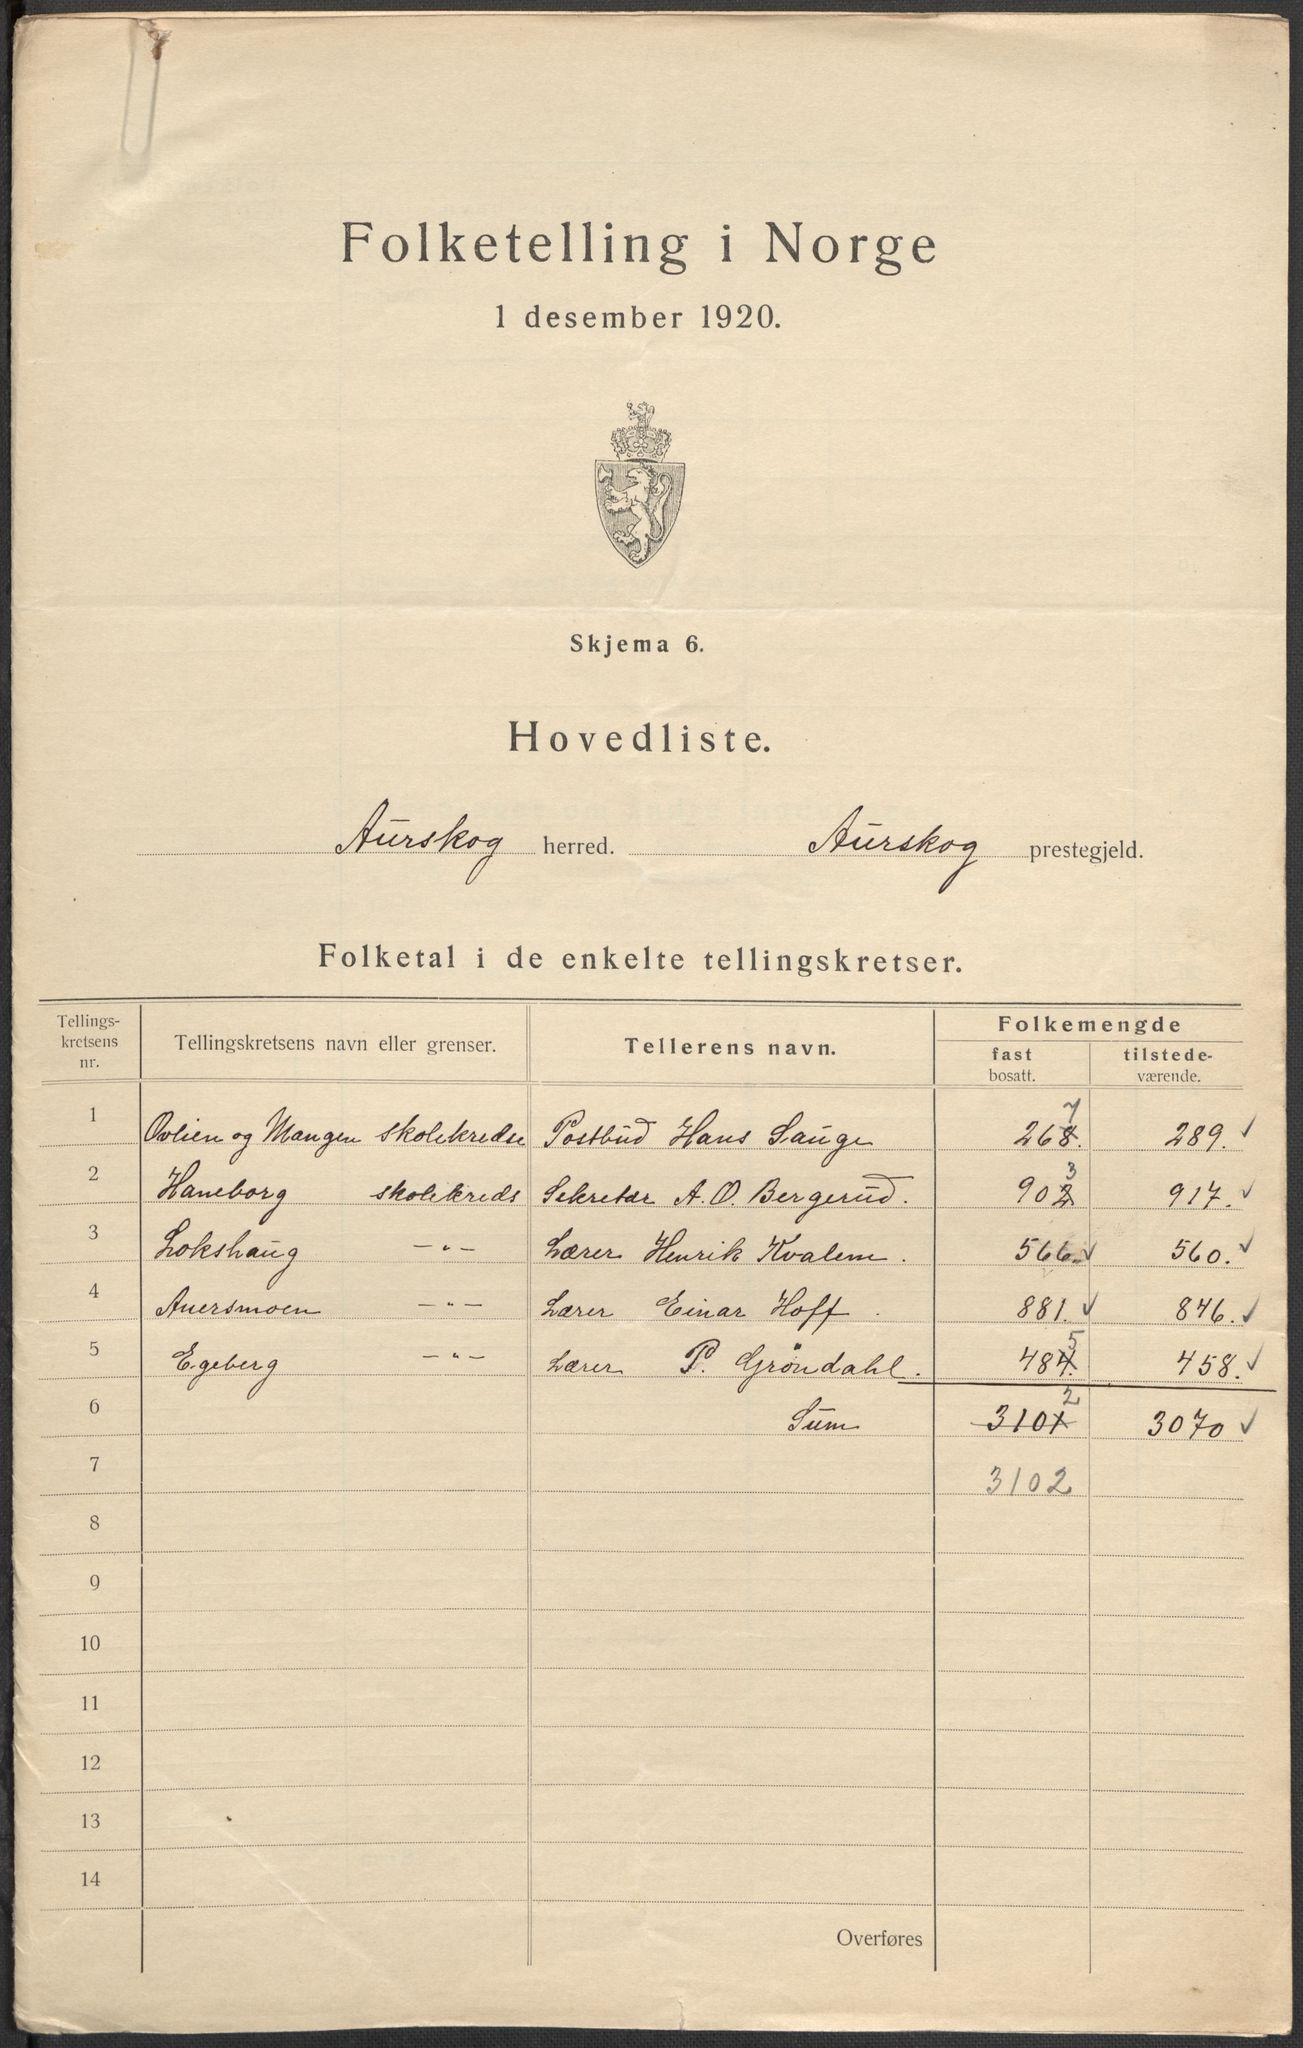 Folketelling i Norge
1 desember 1920.
Skjema 6.
Hovedliste.
Aurskog herred. Aurskog prestegjeld.
Folketal i de enkelte tellingskretser.
Tellings-
kretsens
nr.
Tellingskretsens navn eller grenser.
Tellerens navn.
Folkemengde
fast
bosatt.
tilstede-
værende.
7
1 Ovlien og Mangen skolekredse Postbud Hans Sauge 268. 289. ✓
3
2 Haneborg skolekreds Sekretær A. O. Bergerud. 902 917. ✓
3 Lokshaug —"— Lærer Henrik Kvalem. 566. ✓ 560. ✓
4 Auersmoen —"— Lærer Einar Hoff. 881. ✓ 846. ✓
5
5 Egeberg —"— Lærer P. Gröndahl. 484. 458. ✓
2
6 Sum 3101 3070 ✓
7 3102
8
9
10
11
12
13
14
Overføres